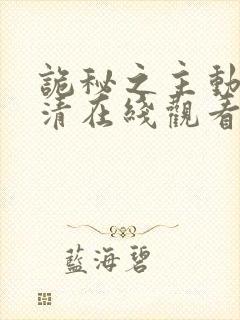 詭秘之主動
清在綫觀看
藍海碧